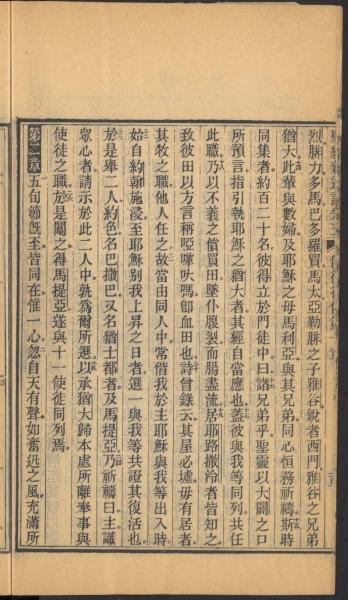 烈腓力多馬巴多羅買馬太亞勒腓之子雅谷銳者西門雅谷之兄弟
猶大此輩與數婦及耶穌之母馬利亞與其兄弟同心恒務祈禱斯時
同集者約百二十名彼得立於門徒中曰諸兄弟乎聖靈以大闢之口
所預言指引執耶穌之猶大者其經自當應也蓋彼與我等同列共任
此職乃以不義之價買田墜仆腹裂而腸盡流居耶路撒冷者皆知之
致彼田以方言稱啞嘩吠嗎卽血田也詩曾錄云其屋必墟毋有居者
其牧之職他人任之故當由同人中常偕我於主耶穌與我等出入時
始自約翰施洗至耶穌别我上昇之日者選一與我等共證其復活也
於是舉二人約色名巴撒巴又名猶士都者及馬提亞乃祈禱曰主識
眾心者請示於此二人中孰為爾所選以承猶大歸本處所離奉事與
使徒之職於是鬮之得馬提亞遂與十一使徒同列焉
第二章五旬節旣至皆同在惟一心忽自天有聲如奮迅之風充滿所